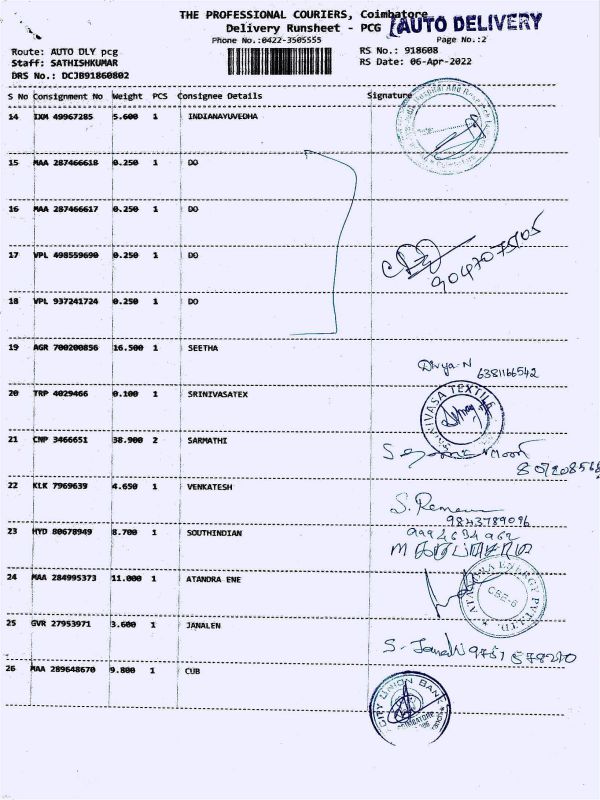 THE PROFESSIONAL COURIERS, Coimbatore
AUTO DELIVERY
Delivery Runsheet - PCG
Phone No.:0422-3505555
Page No.:2
Route: AUTO DLY pcg
RS No.: 918608
Staff: SATHISHKUMAR
RS Date: 06-Apr-2022
DRS No.: DCJB91860802
S No Consignment No Weight PCS Consignee Details Signature
14 IXM 49967285 5.600 1 INDIANAYUVEDHA
15 MAA 287466618 0.250 1 DO
16 MAA 287466617 0.250 1 DO
17 VPL 498559690 0.250 1 DO
9047075105
18 VPL 937241724 0.250 1 DO
19 AGR 700200856 16.500 1 SEETHA
Divya-N
6381166542
20 TRP 4029466 0.100 1 SRINIVASATEX
21 CNP 3466651 38.900 2 SARMATHI
22 KLK 7969639 4.650 1 VENKATESH
9843789096
23 HYD 80678949 8.700 1 SOUTHINDIAN
24 MAA 284995373 11.000 1 ATANDRA ENE
ATANDRA ENERGY PVT LTD.
CBE-6
25 GVR 27953971 3.600 1 JANALEN
26 MAA 289648670 9.800 1 CUB
CITY UNION BANK
COIMBATORE